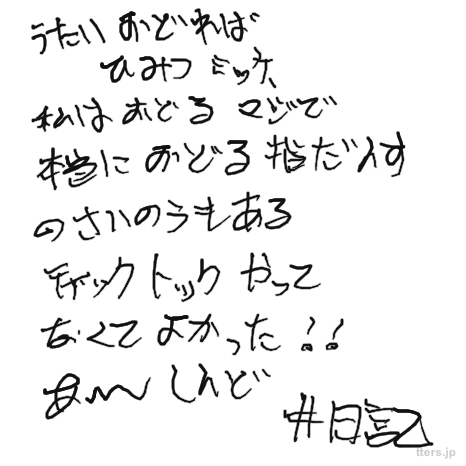 うたい おどれば
ひみつ ミッケ、
私は おどる マジで
本当に おどる 指だけす
のさいのうもある
チックトック やって
なくて よかった!!
あ〜 しんど
#日記
tters.jp